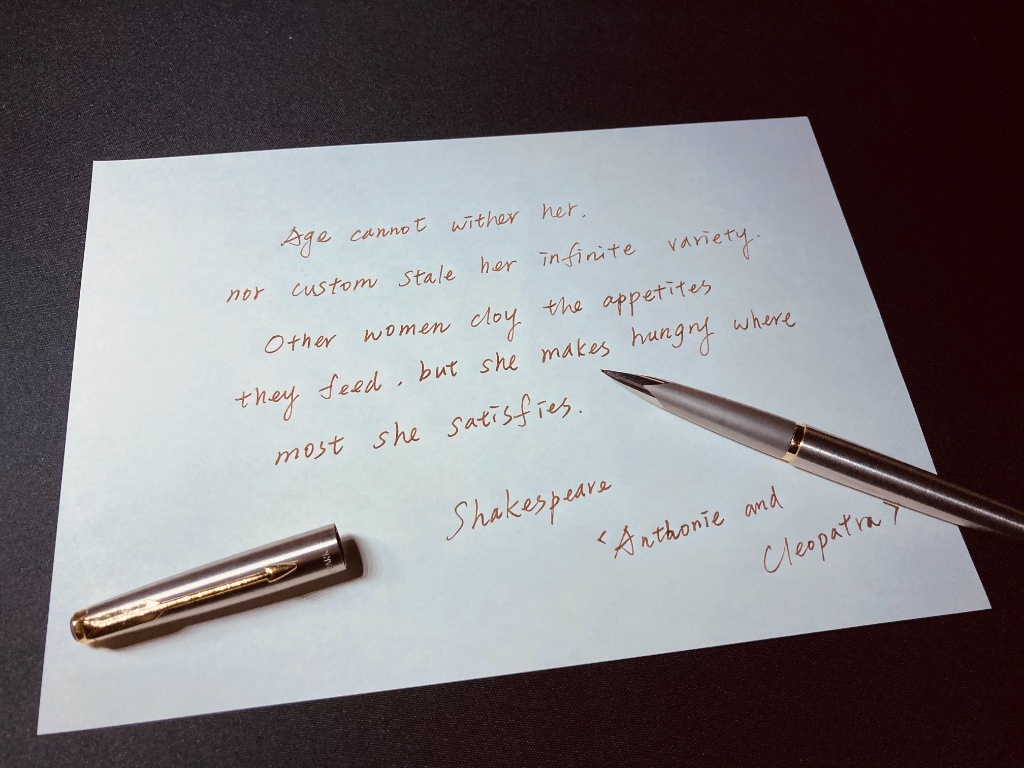 Age cannot wither her.
nor custom stale her infinite variety.
Other women cloy the appetites
they feed, but she makes hungry where
most she satisfies.
Shakespeare
<Anthonie and
Cleopatra>